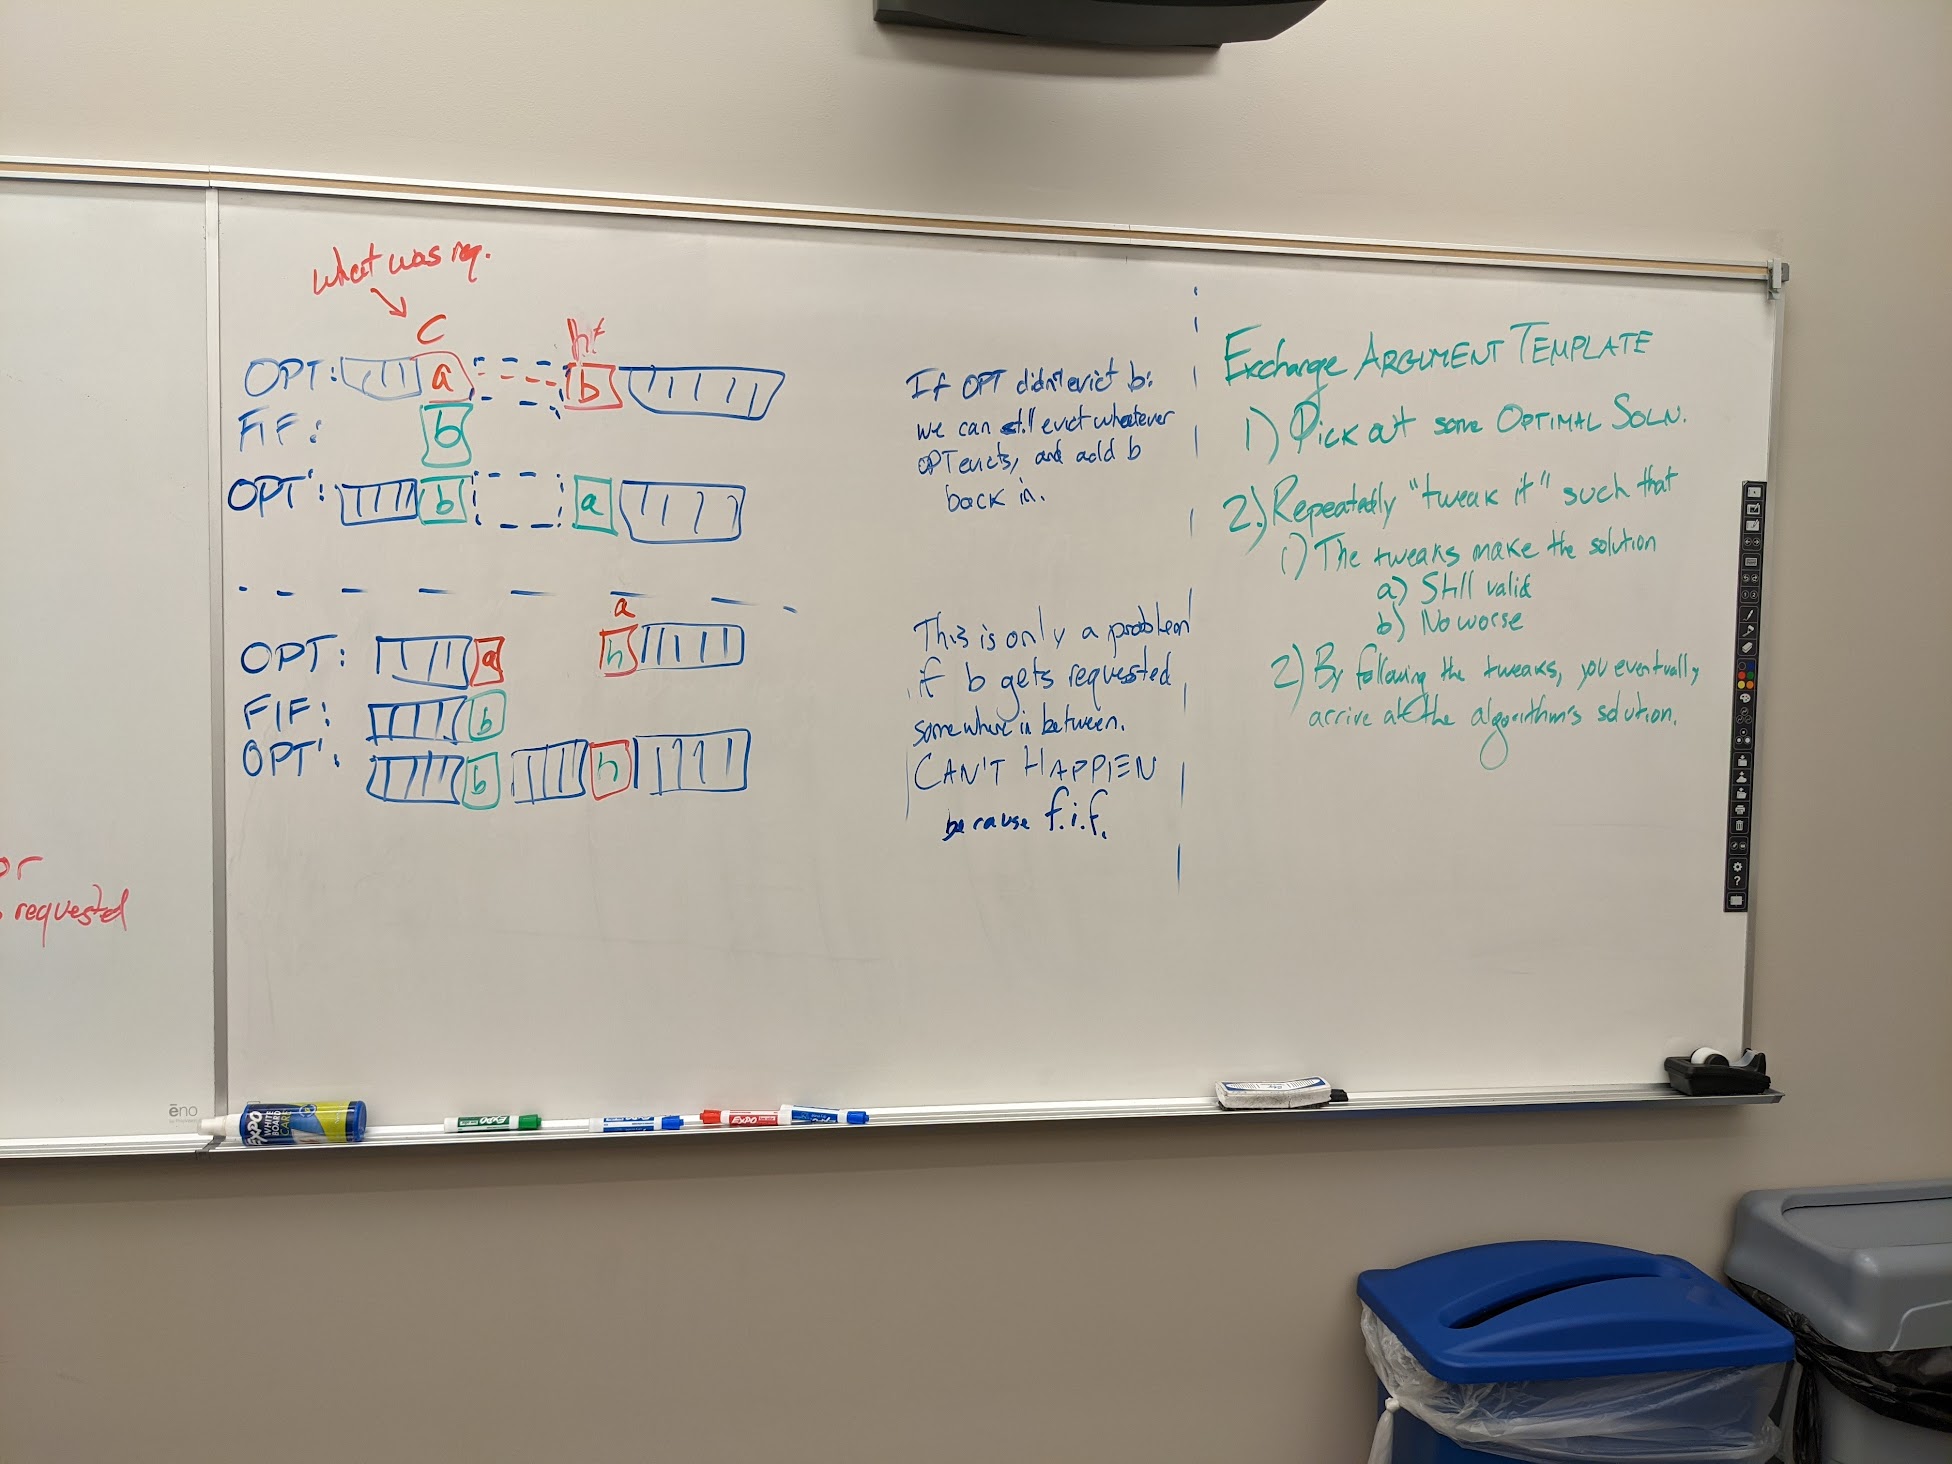 what was req.
C
h
OPT: a b
FIF: b
OPT': b a
a
OPT: a h
FIF: b
OPT': b h
If OPT didn't evict b:
we can still evict whatever
OPT evicts, and add b
back in.
This is only a problem
if b gets requested
somewhere in between.
CAN'T HAPPEN
because f.i.f.
Exchange ARGUMENT TEMPLATE
1) Pick out some OPTIMAL SOLN.
2.) Repeatedly "tweak it" such that
1) The tweaks make the solution
a) Still valid
b) No worse
2) By following the tweaks, you eventually
arrive at the algorithm's solution.
or
requested
ēno
EXPO
WHITE
BOARD
CARE
EXPO
EXPO